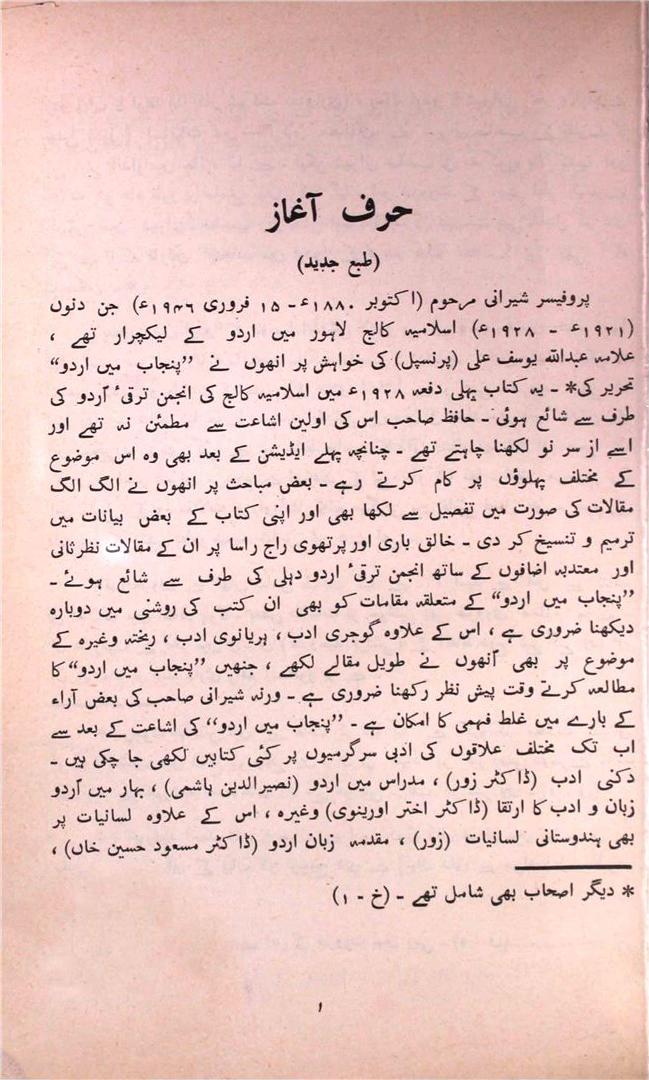 حرف آغاز
(طبع جدید)
پروفیسر شیرانی مرحوم (اکتوبر ۱۸۸۰ء - ۱۵ فروری ۱۹۴۶ء) جن دنوں
(۱۹۲۱ء - ۱۹۲۸ء) اسلامیہ کالج لاہور میں اردو کے لیکچرار تھے ،
علامہ عبداللہ یوسف علی (پرنسپل) کی خواہش پر انھوں نے ”پنجاب میں اردو“
تحریر کی* - یہ کتاب پہلی دفعہ ۱۹۲۸ء میں اسلامیہ کالج کی انجمن ترقیٔ اُردو کی
طرف سے شائع ہوئی - حافظ صاحب اس کی اولین اشاعت سے مطمئن نہ تھے اور
اسے از سر نو لکھنا چاہتے تھے - چنانچہ پہلے ایڈیشن کے بعد بھی وہ اس موضوع
کے مختلف پہلوؤں پر کام کرتے رہے - بعض مباحث پر انھوں نے الگ الگ
مقالات کی صورت میں تفصیل سے لکھا بھی اور اپنی کتاب کے بعض بیانات میں
ترمیم و تنسیخ کر دی - خالق باری اور پرتھوی راج راسا پر ان کے مقالات نظرثانی
اور معتدبہ اضافوں کے ساتھ انجمن ترقیٔ اردو دہلی کی طرف سے شائع ہوئے -
”پنجاب میں اردو“ کے متعلقہ مقامات کو بھی ان کتب کی روشنی میں دوبارہ
دیکھنا ضروری ہے ، اس کے علاوہ گوجری ادب ، ہریانوی ادب ، ریختہ وغیرہ کے
موضوع پر بھی اُنھوں نے طویل مقالے لکھے ، جنھیں ”پنجاب میں اردو“ کا
مطالعہ کرتے وقت پیش نظر رکھنا ضروری ہے - ورنہ شیرانی صاحب کی بعض آراء
کے بارے میں غلط فہمی کا امکان ہے - ”پنجاب میں اردو“ کی اشاعت کے بعد سے
اب تک مختلف علاقوں کی ادبی سرگرمیوں پر کئی کتابیں لکھی جا چکی ہیں -
دکنی ادب (ڈاکٹر زور) ، مدراس میں اردو (نصیرالدین ہاشمی) ، بہار میں اُردو
زبان و ادب کا ارتقا (ڈاکٹر اختر اورینوی) وغیرہ ، اس کے علاوہ لسانیات پر
بھی ہندوستانی لسانیات (زور) ، مقدمہ زبان اردو (ڈاکٹر مسعود حسین خاں) ،
* دیگر اصحاب بھی شامل تھے - (خ - ۱)
۱